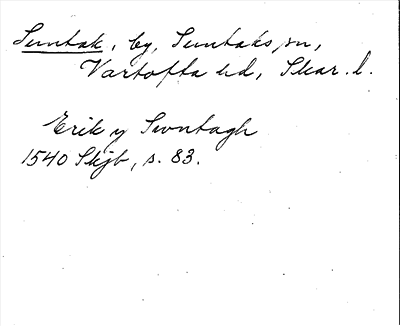 Suntak, by, Suntaks sn,
Vartofta hd, Skar. l.
Erik y Swntagh
1540 Skjb, s. 83.